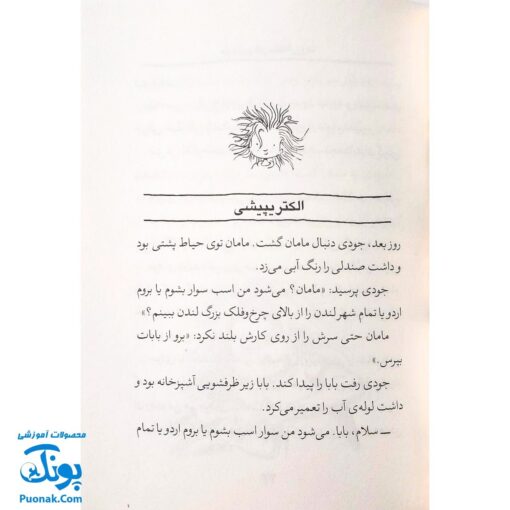 الکتریپیشی
روز بعد، جودی دنبال مامان گشت. مامان توی حیاط پشتی بود
و داشت صندلی را رنگ آبی می‌زد.
جودی پرسید: «مامان؟ می‌شود من اسب سوار بشوم یا بروم
اردو یا تمام شهر لندن را از بالای چرخ‌وفلک بزرگ لندن ببینم؟»
مامان حتی سرش را از روی کارش بلند نکرد: «برو از بابات
بپرس.»
جودی رفت بابا را پیدا کند. بابا زیر ظرفشویی آشپزخانه بود و
داشت لوله‌ی آب را تعمیر می‌کرد.
ـ سلام، بابا. می‌شود من سوار اسب بشوم یا بروم اردو یا تمام
محصولات آموزشی
پونک
Puonak.Com